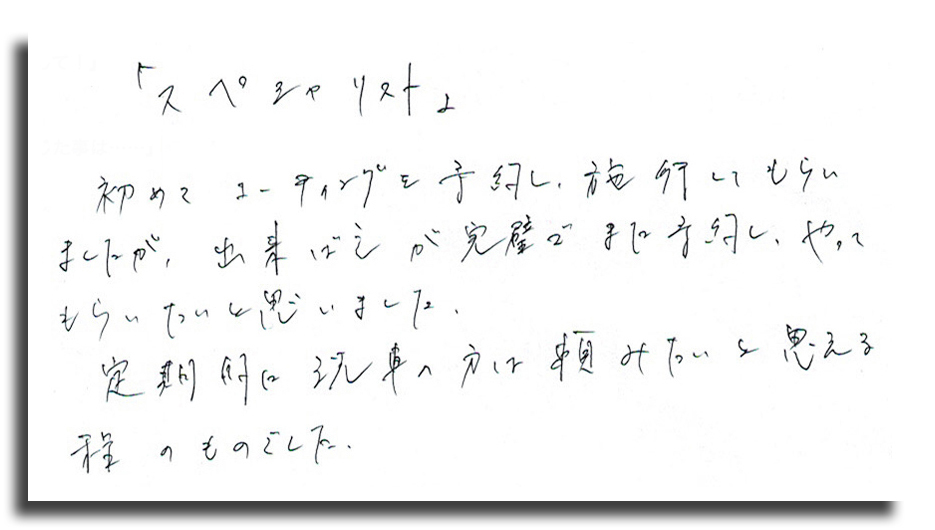 「スペシャリスト」
初めてコーティングを予約し、施行してもらい
ましたが、出来ばえが完璧でまた予約し、やって
もらいたいと思いました。
定期的に洗車の方は頼みたいと思える
程のものでした。